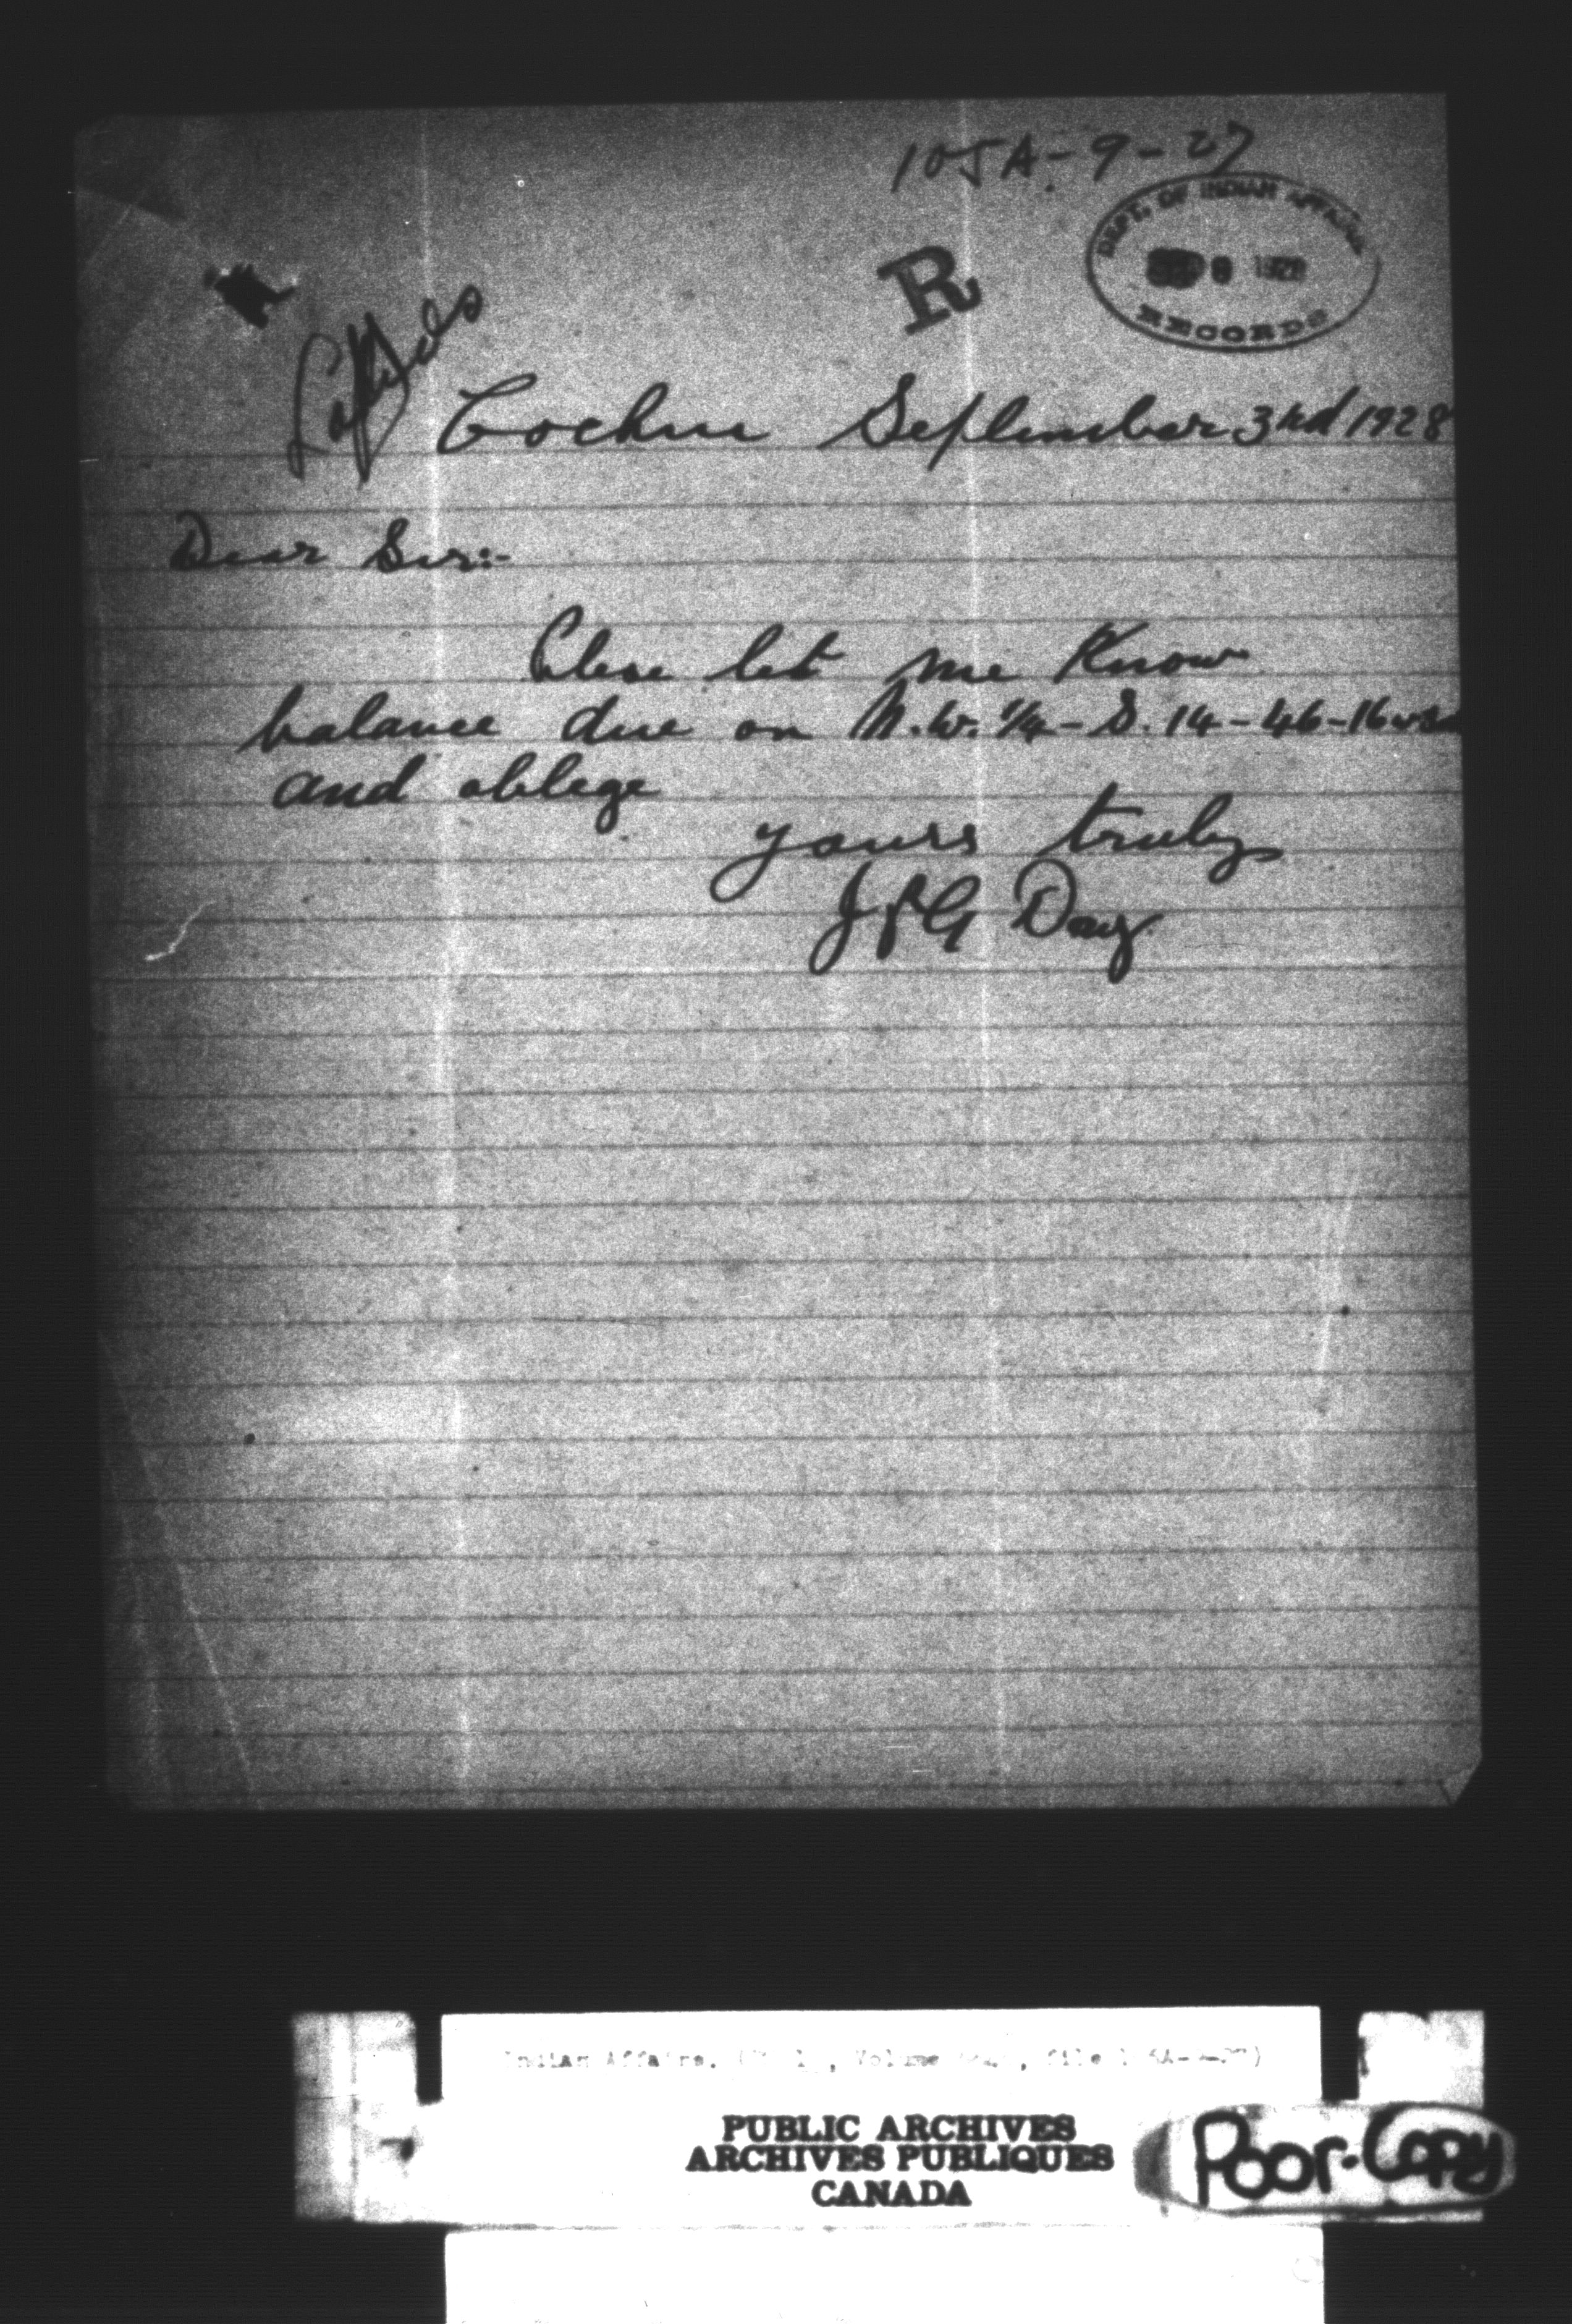 105A-9-27
DEPT. OF INDIAN AFFAIRS
SEP 8 1928
RECORDS
R
Cochin September 3rd 1928
Dear Sir:-
Please let me Know
balance due on N.W. 1/4 - S. 14-46-16
and oblege
yours truly
Day
Indian Affairs. Volume file
PUBLIC ARCHIVES
ARCHIVES PUBLIQUES
CANADA
Poor-Copy